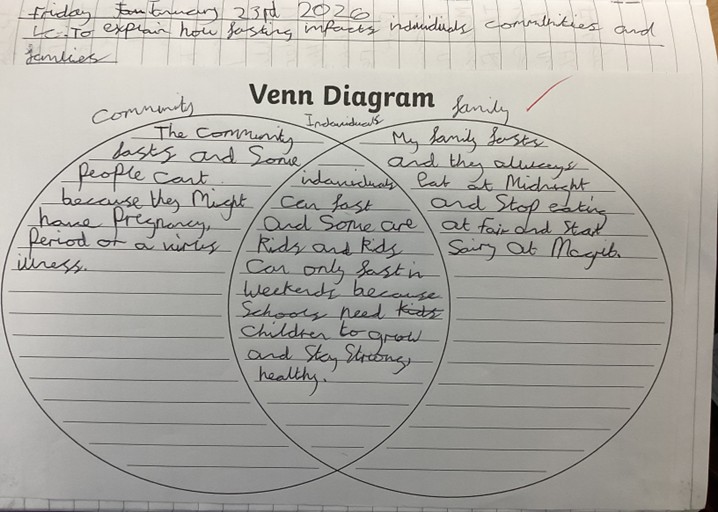 Friday January 23rd 2026
L.C. To explain how fasting impacts individuals communities and
families
Venn Diagram
Community
Individuals
family
The Community
fasts and Some
people cant
because they Might
have Pregnancy,
Period or a virus
illness.
individuals
Can fast
and Some are
Kids and kids
Can only fast in
Weekends because
Schools need kids
children to grow
and Stay Strong,
healthy.
My family fasts
and they allways
Eat at Midnight
and Stop eating
at fajr and Start
at Magrib.